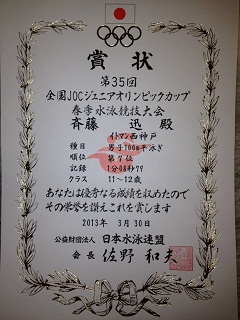 賞状
第35回
全国JOCジュニアオリンピックカップ
春季水泳競技大会
斉藤 迅 殿
イトマン西神戸
種目 男子100m平泳ぎ
順位 第7位
記録 1分08秒79
クラス 11〜12歳
あなたは優秀なる成績を収めたので
その栄誉を讃えこれを賞します
2013年 3月30日
公益財団法人 日本水泳連盟
会長 佐野和夫